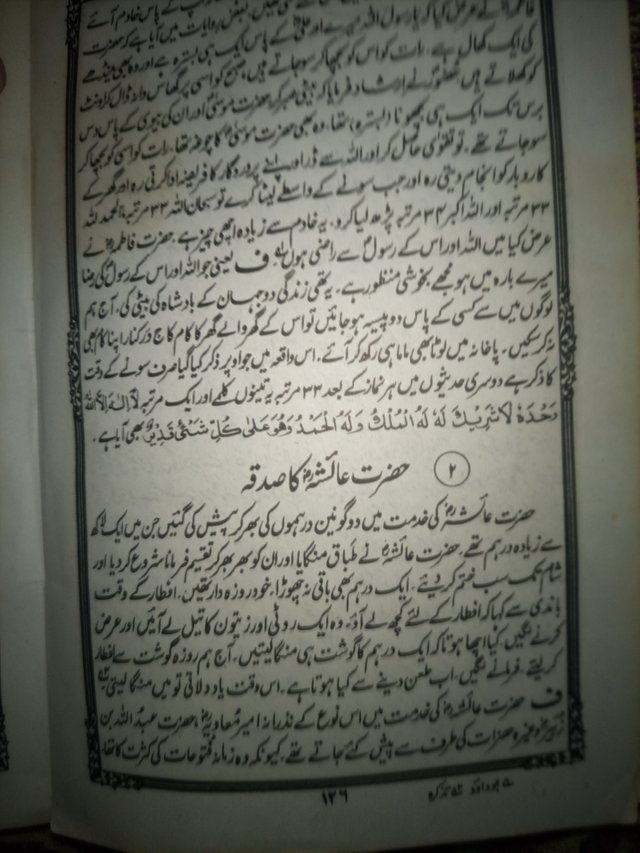 فاطمہؓ نے عرض کیا کہ یا رسول اللہ میرے اور علیؓ کے پاس ایک ہی بسترہ ہے اور وہ بھی مینڈھے
کی ایک کھال ہے۔ رات کو اس کو بچھا کر سو جاتے ہیں، صبح کو اسی پر گھاس دانہ ڈال کر اونٹ
کو کھلاتے ہیں حضورؐ نے ارشاد فرمایا کہ بیٹی صبر کر حضرت موسیٰؑ اور ان کی بیوی کے پاس دس
برس تک ایک ہی بچھونا (بسترہ) تھا۔ وہ بھی حضرت موسیٰؑ کا چوغہ تھا۔ رات کو اسی کو بچھا کر
سو جاتے تھے۔ تو تقویٰ حاصل کر اور اللہ سے ڈر اور اپنے پروردگار کا فریضہ ادا کرتی رہ اور گھر کے
کاروبار کو انجام دیتی رہ اور جب سونے کے واسطے لیٹا کرے تو سبحان اللہ ۳۳ مرتبہ، الحمد للہ
۳۳ مرتبہ اور اللہ اکبر ۳۴ مرتبہ پڑھ لیا کرو۔ یہ خادم سے زیادہ اچھی چیز ہے۔ حضرت فاطمہؓ نے
عرض کیا میں اللہ اور اس کے رسولؐ سے راضی ہوں۔ ف یعنی جو اللہ اور اس کے رسولؐ کی رضا
میرے بارہ میں ہو مجھے بخوشی منظور ہے۔ یہ تھی زندگی دو جہان کے بادشاہ کی بیٹی کی۔ آج ہم
لوگوں میں سے کسی کے پاس دو پیسہ ہو جائیں تو اس کے گھر والے گھر کا کام کاج درکنار اپنا کام بھی
نہ کر سکیں۔ پاخانہ میں لوٹا بھی ماما ہی رکھ کر آئے۔ اس واقعہ میں جو اوپر ذکر کیا گیا صرف سونے کے وقت
کا ذکر ہے دوسری حدیثوں میں ہر نماز کے بعد ۳۳ مرتبہ یہ تینوں کلمے اور ایک مرتبہ لَا اِلٰہَ اِلَّا اللہُ
وَحْدَہٗ لَا شَرِیْکَ لَہٗ لَہُ الْمُلْکُ وَلَہُ الْحَمْدُ وَھُوَ عَلٰی کُلِّ شَیْءٍ قَدِیْرٌ بھی آیا ہے۔
۲ حضرت عائشہؓ کا صدقہ
حضرت عائشہؓ کی خدمت میں دو گونین درہموں کی بھر کر پیش کی گئیں جن میں ایک لاکھ
سے زیادہ درہم تھے۔ حضرت عائشہؓ نے طباق منگایا اور ان کو بھر بھر کر تقسیم فرمانا شروع کر دیا اور
شام تک سب ختم کر دیئے۔ ایک درہم بھی باقی نہ چھوڑا، خود روزہ دار تھیں۔ افطار کے وقت
باندی سے کہا کہ افطار کے لئے کچھ لے آؤ۔ وہ ایک روٹی اور زیتون کا تیل لے آئیں اور عرض
کرنے لگیں، کیا اچھا ہوتا کہ ایک درہم کا گوشت ہی منگا لیتیں۔ آج ہم روزہ گوشت سے افطار
کر لیتے۔ فرمانے لگیں، اب طعن دینے سے کیا ہوتا ہے۔ اس وقت یاد دلاتی تو میں منگا لیتی
ف حضرت عائشہؓ کی خدمت میں اس نوع کے نذرانہ امیر معاویہؓ، حضرت عبد اللہ بن
زبیرؓ وغیرہ حضرات کی طرف سے پیش کئے جاتے تھے۔ کیونکہ وہ زمانہ فتوحات کی کثرت کا تھا۔
لہ ابو داؤد لہ تذکرہ
۱۳۶